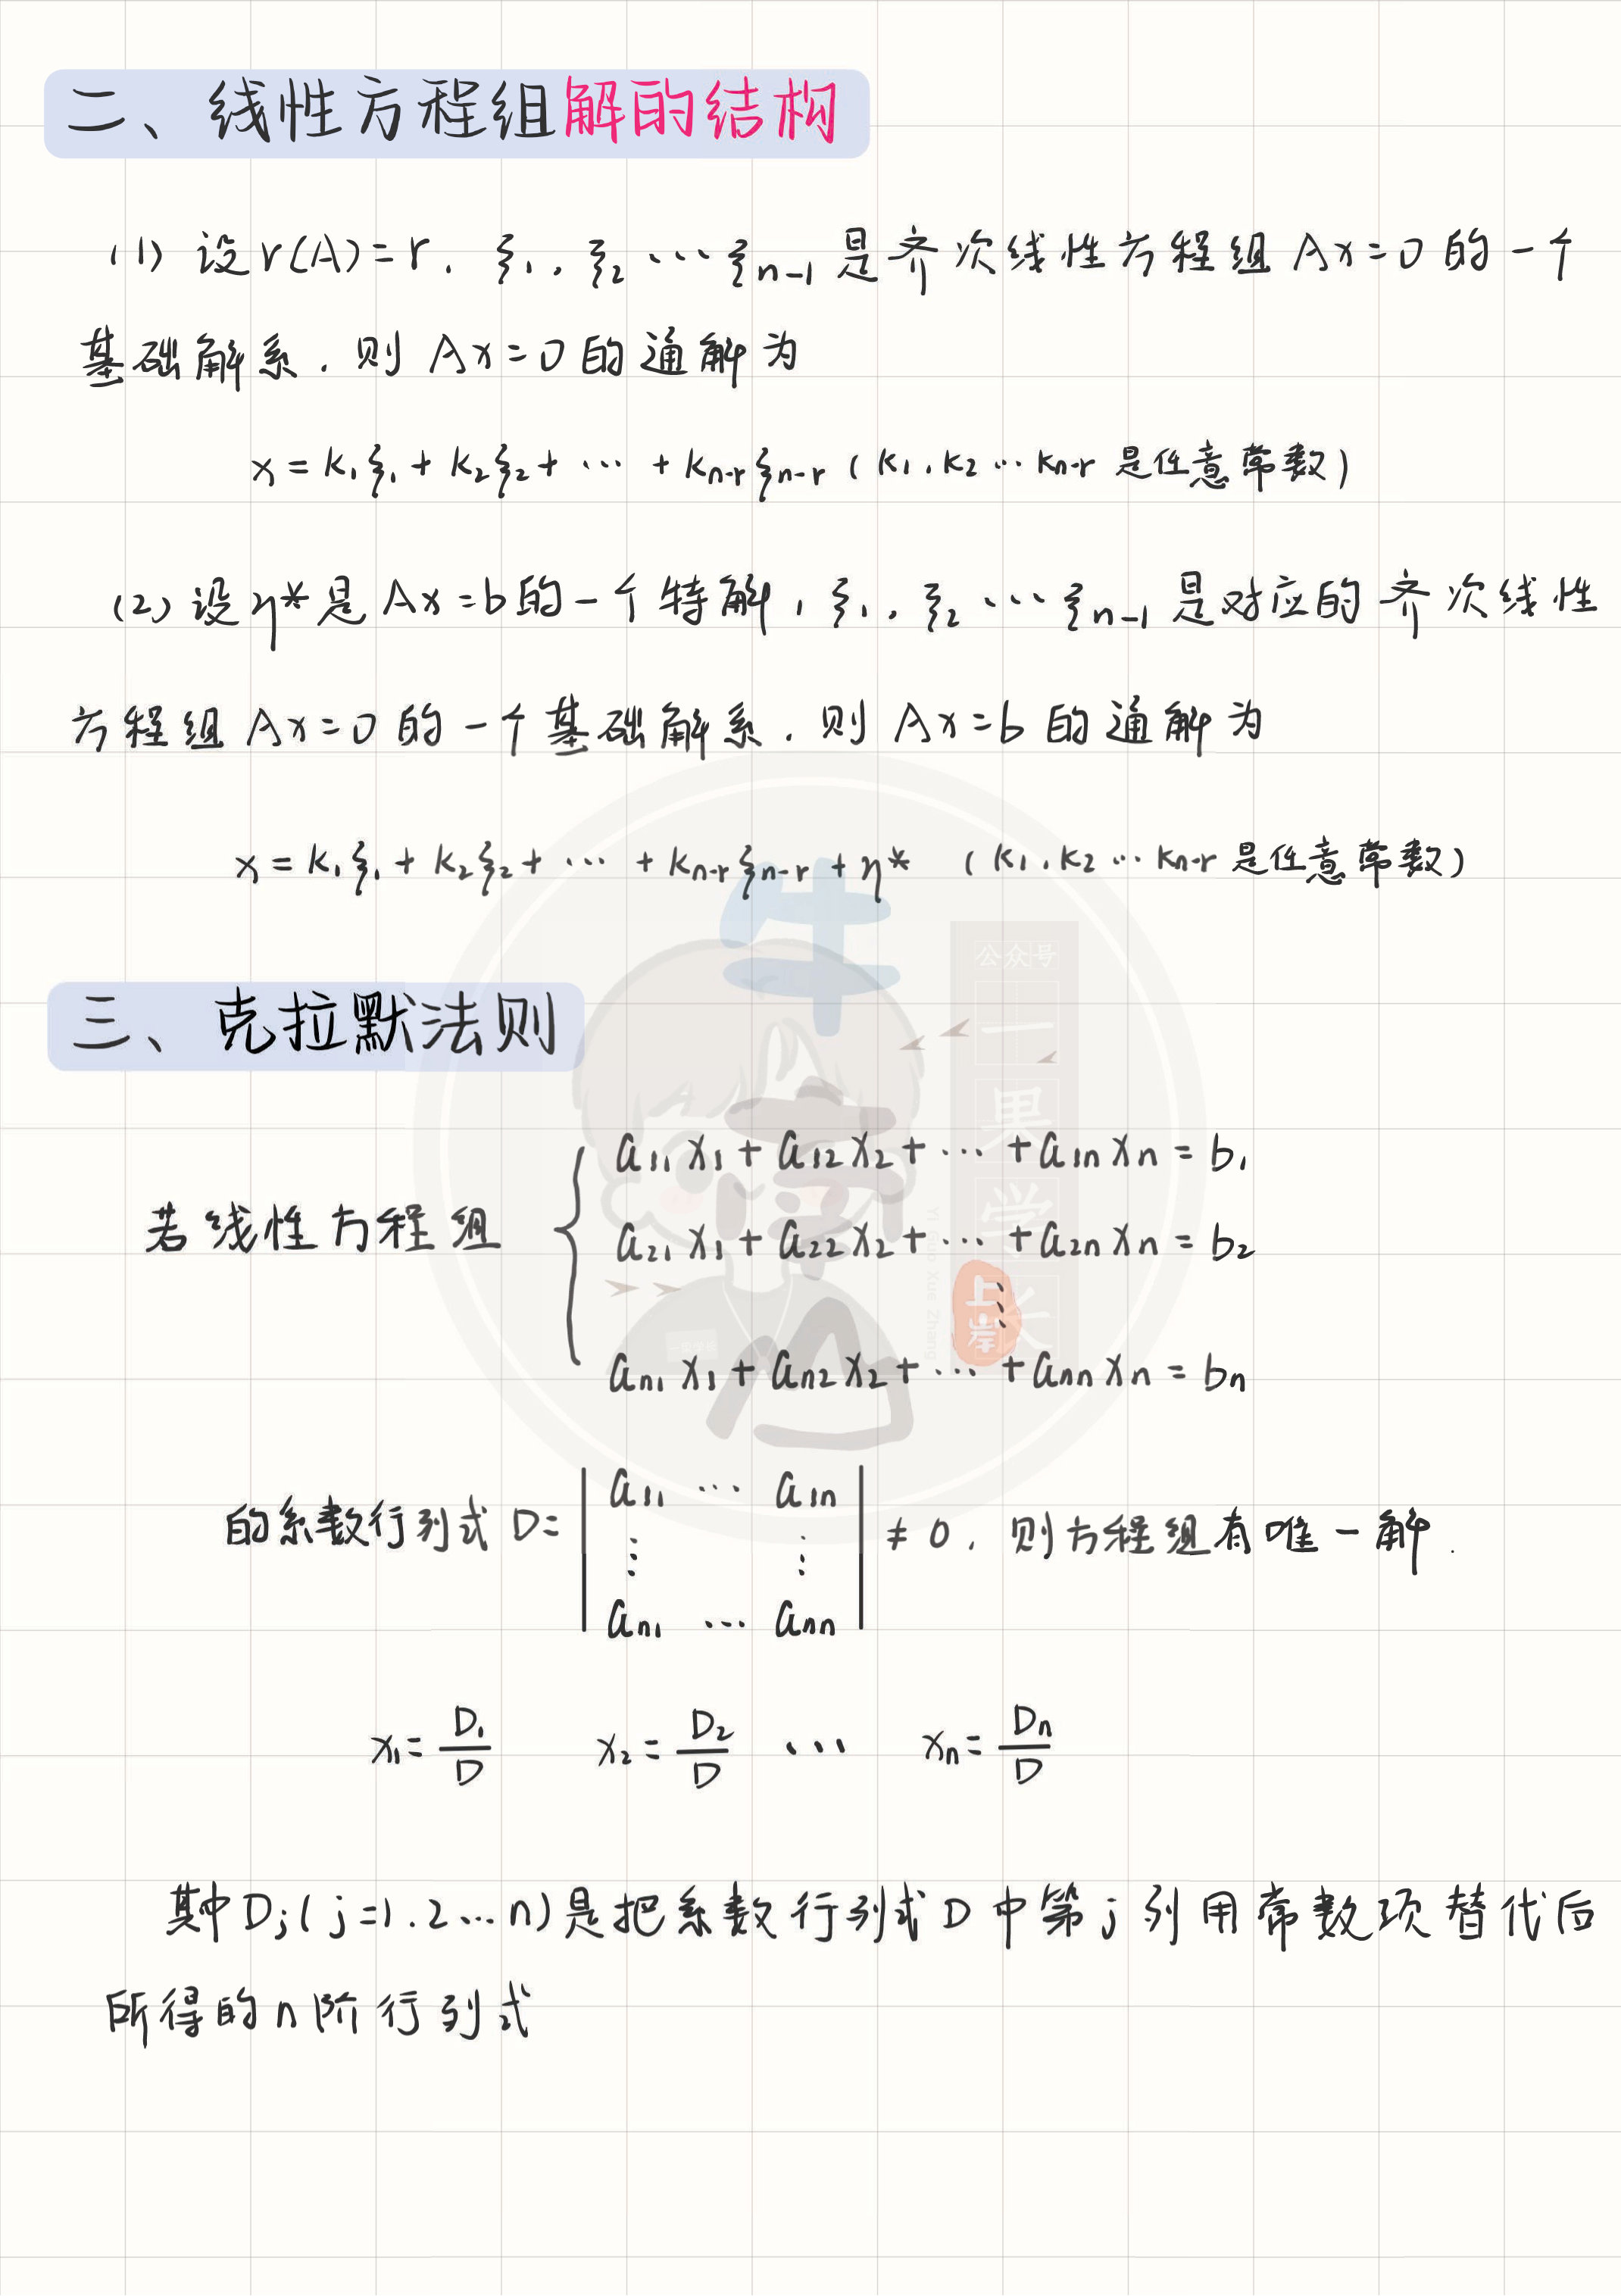 二、线性方程组解的结构
(1) 设 r(A)=r. ξ₁, ξ₂ … ξn-1 是齐次线性方程组 Ax=0 的一个
基础解系. 则 Ax=0 的通解为
x = k₁ξ₁ + k₂ξ₂ + … + kn-rξn-r ( k₁, k₂ … kn-r 是任意常数)
(2) 设η*是 Ax=b的一个特解, ξ₁, ξ₂ … ξn-1 是对应的齐次线性
方程组 Ax=0 的一个基础解系. 则 Ax=b 的通解为
x = k₁ξ₁ + k₂ξ₂ + … + kn-rξn-r + η* ( k₁, k₂ … kn-r 是任意常数)
牛
公众号
一果学长
Yi Guo Xue Zhang
上岸
三、克拉默法则
a₁₁x₁ + a₁₂x₂ + … + a₁nxn = b₁
若线性方程组
a₂₁x₁ + a₂₂x₂ + … + a₂nxn = b₂
⋮
an₁x₁ + an₂x₂ + … + annxn = bn
的系数行列式 D= | a₁₁ … a₁n | ≠ 0, 则方程组有唯一解.
⋮ ⋮
an₁ … ann
x₁= D₁/D x₂= D₂/D … xn= Dn/D
其中Dj( j=1.2…n)是把系数行列式 D 中第 j 列用常数项替代后
所得的n阶行列式